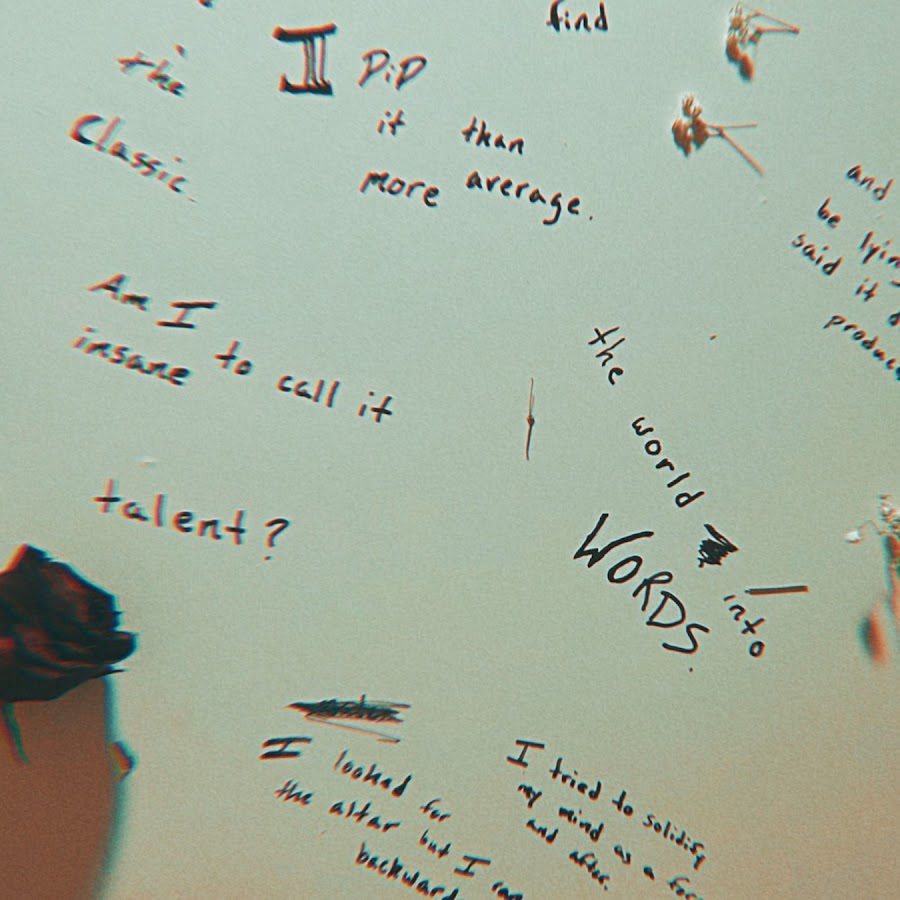 find
the
Classic.
I DiD
it than
more average.
and
be lying
said it
produc
Am I
insane to call it
talent?
the world
into
WORDS.
I looked for
the altar but I ran
backward
I tried to solidify
my mind as a
and after.